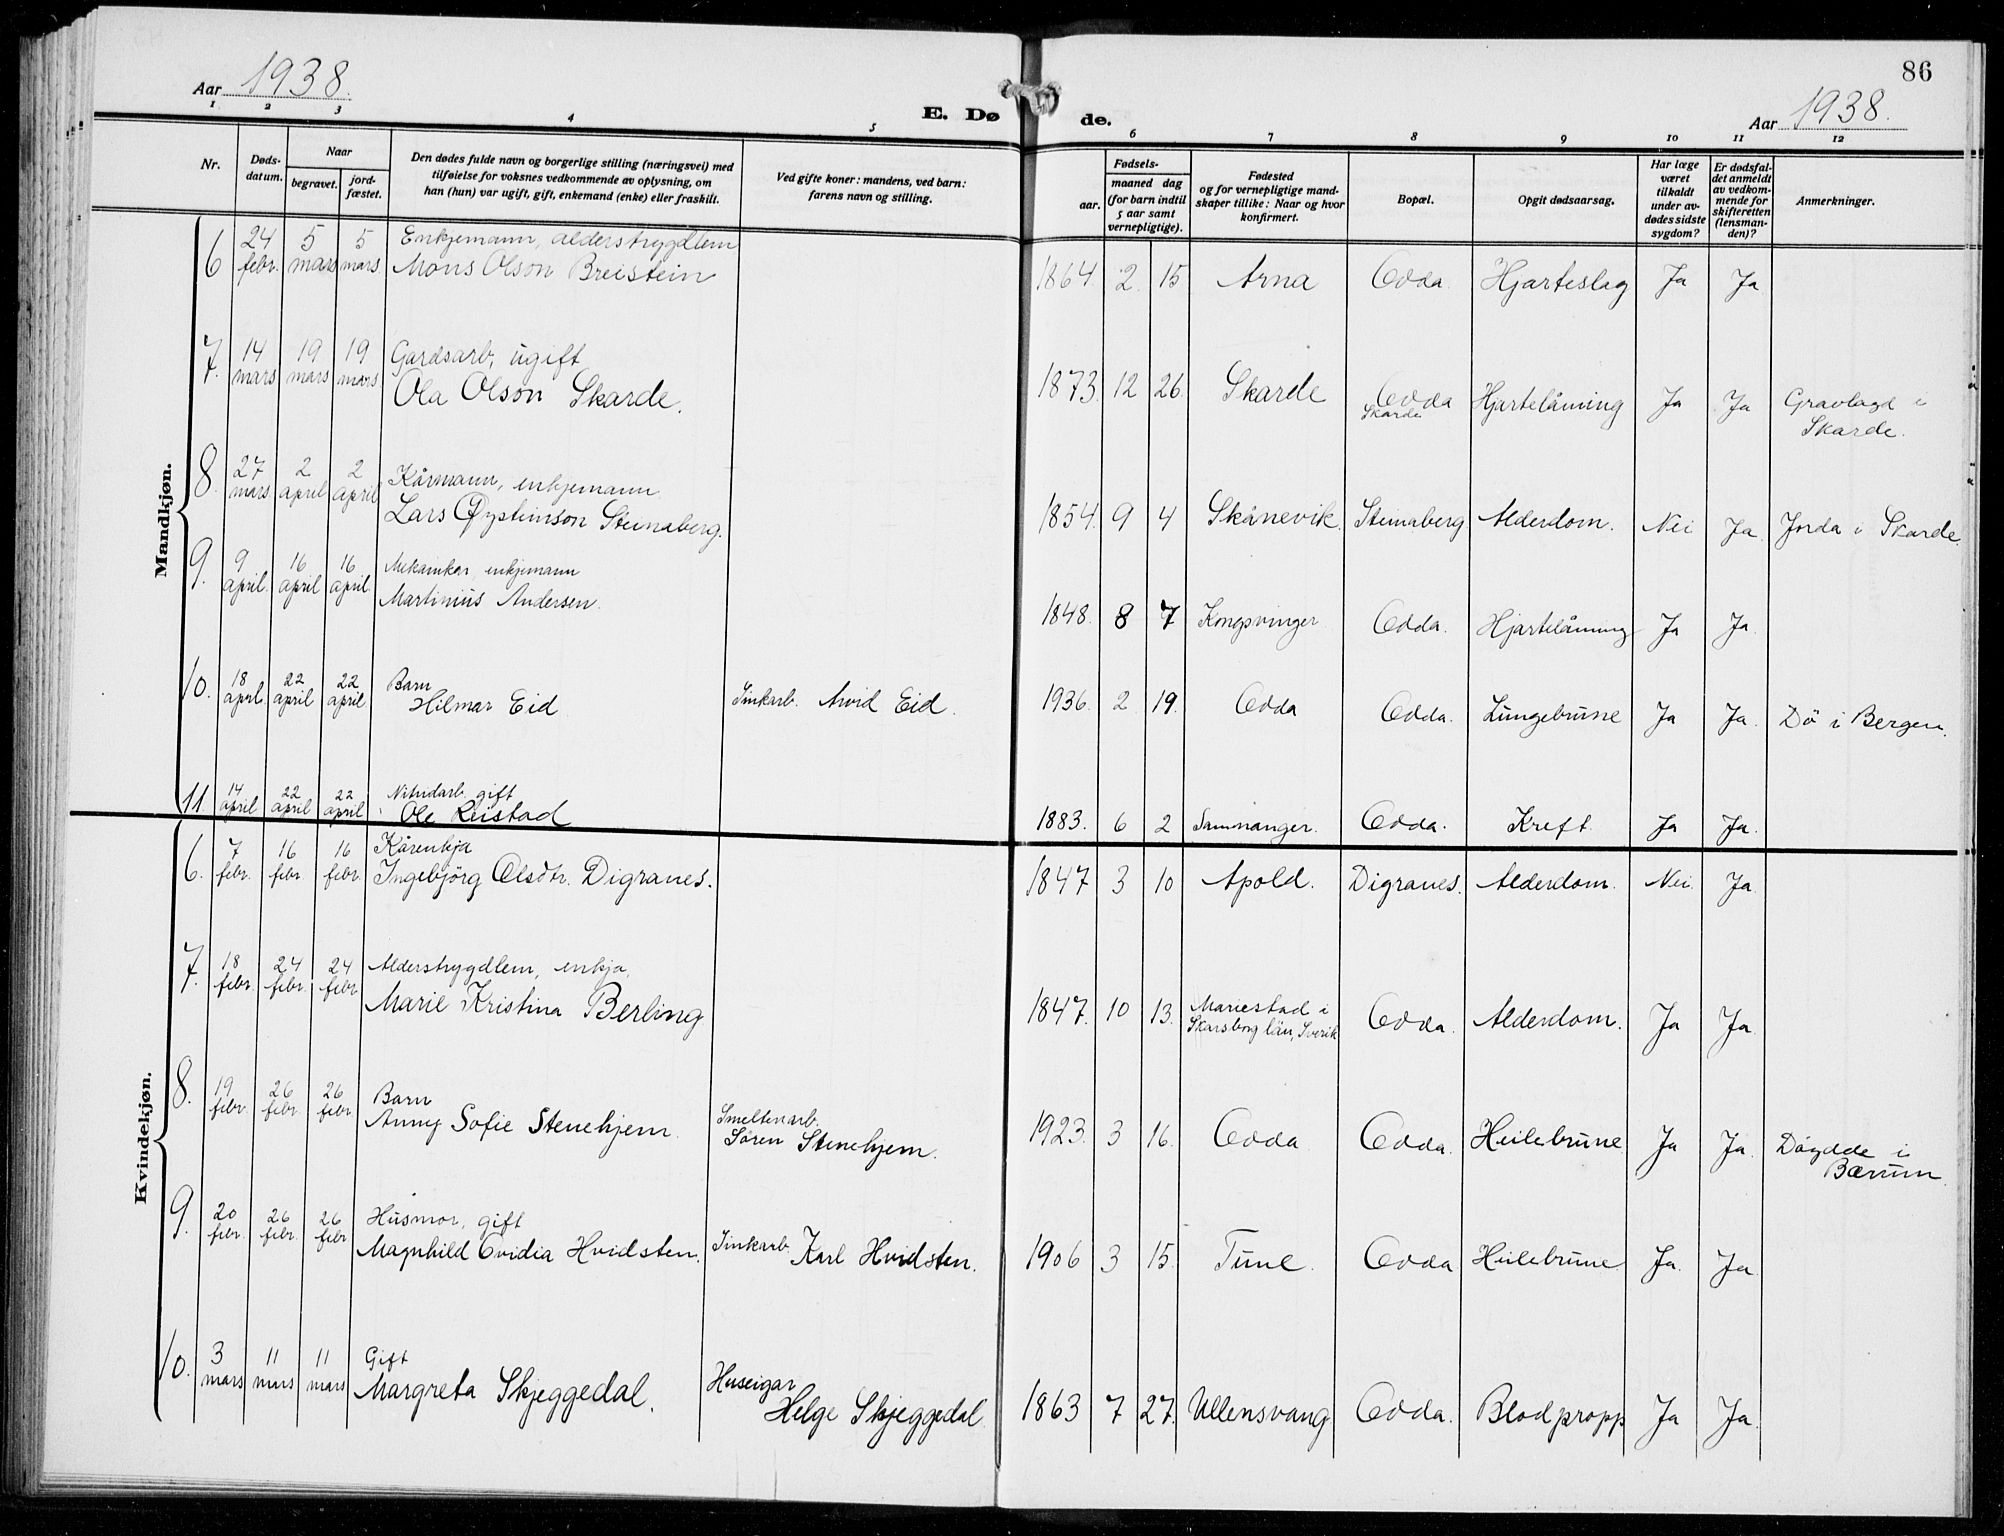 Aar 1938.
E. Døde.
Aar 1938.
86
1 2 3 4 5 6 7 8 9 10 11 12
Nr.
Døds-datum.
Naar
begravet.
jord-fæstet.
Den dødes fulde navn og borgerlige stilling (næringsvei) med
tilføielse for voksnes vedkommende av oplysning, om
han (hun) var ugift, gift, enkemand (enke) eller fraskilt.
Ved gifte koner: mandens, ved barn:
farens navn og stilling.
Fødsels-
aar.
maaned dag
(for barn indtil
5 aar samt
vernepligtige).
Fødested
og for vernepligtige mand-
skaper tillike: Naar og hvor
konfirmert.
Bopæl.
Opgit dødsaarsag.
Har læge
været
tilkaldt
under av-
dødes sidste
sygdom?
Er dødsfal-
det anmeldt
av vedkom-
mende for
skifteretten
(lensman-
den)?
Anmerkninger.
Mandkjøn.
6 24 febr. 5 mars 5 mars. Enkjemann, alderstrygdlem
Mons Olson Breistein 1864. 2. 15 Arna Odda. Hjarteslag Ja Ja
7. 14 mars 19 mars 19 mars. Gardsarb, ugift
Ola Olson Skarde. 1873. 12 26 Skarde Odda Skarde Hjartelåming Ja Ja Gravlagd i
Skarde.
8. 27 mars 2 april 2 april Kårmann, enkjemann
Lars Øysteinson Steinaberg. 1854. 9 4 Skånevik. Steinaberg Alderdom. Nei Ja Jorda i Skarde.
9. 9 april. 16 april 16 april. Mekanikar, enkjemann
Martinius Andersen. 1848. 8 7 Kongsvinger Odda. Hjartelåming Ja Ja
10. 18 april 22 april 22 april Barn
Hilmar Eid Sinkarb. Arvid Eid. 1936. 2. 19. Odda Odda. Lungebrune Ja Ja. Dö i Bergen.
11 14 april 22 april 22 april Nitridarb. gift
Ole Reistad 1883. 6 2 Samnanger. Odda. Kreft Ja Ja.
Kvindekjøn.
6. 7 febr. 16 febr. 16 febr. Kårenkja
Ingebjörg Olsdtr. Digranes. 1847 3 10 Apold. Digranes. Alderdom. Nei. Ja.
7. 18 febr. 24 febr. 24 febr Alderstrygdlem, enkja,
Marie Kristina Berling 1847. 10 13. Mariestad i
Skarsborg län, Sverik Odda. Alderdom. Ja Ja.
8. 19 febr. 26 febr. 26 febr Barn
Anny Sofie Stenehjem. Smeltenarb.
Sören Stenehjem. 1923. 3 16. Odda Odda. Heilebrune Ja Ja. Döydde i
Bærum
9. 20 febr. 26 febr. 26 febr Husmor, gift
Magnhild Ovidia Hvidsten. Sinkarb. Karl Hvidsten. 1906 3 15. Tune. Odda Heilebrune. Ja. Ja
10. 3 mars 11 mars 11 mars Gift
Margreta Skjeggedal. Huseigar
Helge Skjeggedal. 1863 7 27. Ullensvang Odda. Blodpropp Ja Ja.